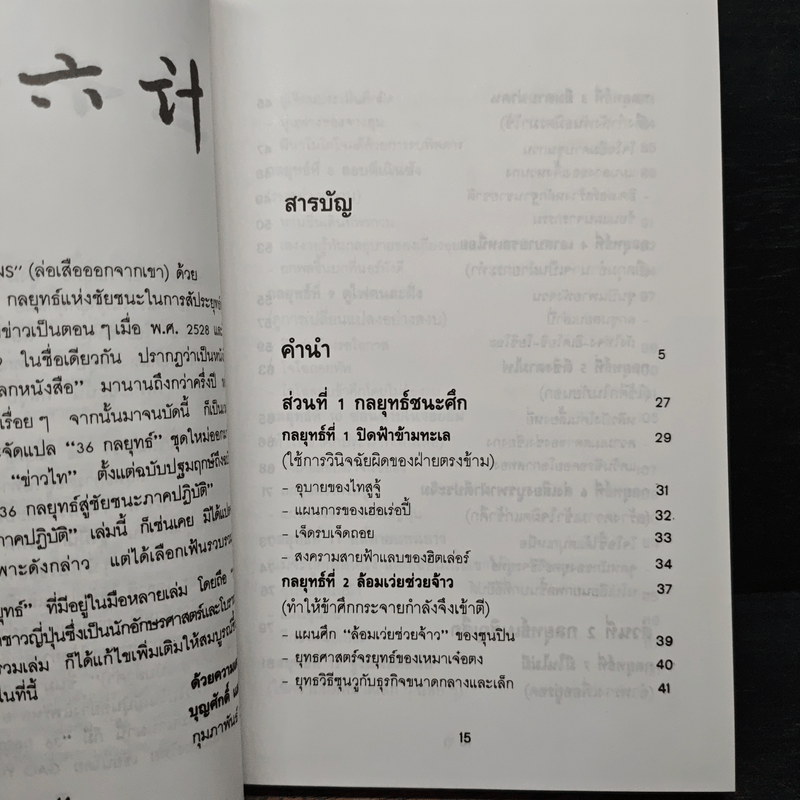 六 计
(ล่อเสือออกจากเขา) ด้วย
กลยุทธ์แห่งชัยชนะในการสัประยุทธ์
ข่าวเป็นตอน ๆ เมื่อ พ.ศ. 2528 และ
ในชื่อเดียวกัน ปรากฏว่าเป็นหนัง
มานานถึงกว่าครึ่งปี
เรื่อย ๆ จากนั้นมาจนบัดนี้ ก็เป็น
จัดแปล “36 กลยุทธ์” ชุดใหม่ออก
“ข่าวไท” ตั้งแต่ฉบับปฐมฤกษ์ถึง
36 กลยุทธ์สู่ชัยชนะภาคปฏิบัติ”
ภาคปฏิบัติ” เล่มนี้ ก็เช่นเคย มิได้แปล
พาะดังกล่าว แต่ได้เลือกเฟ้นรวบรวม
ยุทธ์” ที่มีอยู่ในมือหลายเล่ม โดยถือ
ชาวญี่ปุ่นซึ่งเป็นนักอักษรศาสตร์และโบราณ
รวมเล่ม ก็ได้แก้ไขเพิ่มเติมให้สมบูรณ์
ในที่นี้
ด้วยความ
บุญศักดิ์
กุมภาพันธ์
สารบัญ
คำนำ 5
ส่วนที่ 1 กลยุทธ์ชนะศึก 27
กลยุทธ์ที่ 1 ปิดฟ้าข้ามทะเล 29
(ใช้การวินิจฉัยผิดของฝ่ายตรงข้าม)
- อุบายของไทสูจู้ 31
- แผนการของเฮ่อเร่อปี้ 32
- เจ็ดรบเจ็ดถอย 33
- สงครามสายฟ้าแลบของฮิตเล่อร์ 34
กลยุทธ์ที่ 2 ล้อมเว่ยช่วยจ้าว 37
(ทำให้ข้าศึกกระจายกำลังจึงเข้าตี)
- แผนศึก “ล้อมเว่ยช่วยจ้าว” ของซุนปิน 39
- ยุทธศาสตร์จรยุทธ์ของเหมาเจ๋อตง 40
- ยุทธวิธีซุนวูกับธุรกิจขนาดกลางและเล็ก 41
15